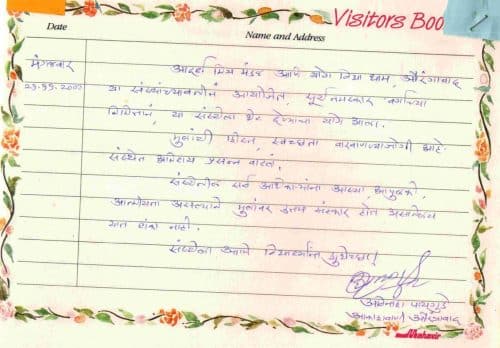 Visitors Boo
Date
Name and Address
मंगळवार
आम्ही मित्र मंडळ आणि योग विद्या धाम, औरंगाबाद
या संस्थांच्यावतीनं आयोजित, सूर्यनमस्कार वर्गाच्या
निमित्तानं, या संस्थेला भेट देण्याचा योग आला.
मुलांची शिस्त, स्वच्छता वाखाणण्याजोगी आहे.
संस्थेत आल्यावर प्रसन्न वाटलं.
संस्थेतील सर्व अधिकाऱ्यांना आस्था, आपुलकी,
आत्मीयता असल्याने मुलांवर उत्तम संस्कार होत असतील
यात शंका नाही.
संस्थेला आणि विद्यार्थ्यांना शुभेच्छा!
अविनाश पायगुडे
आकाशवाणी औरंगाबाद